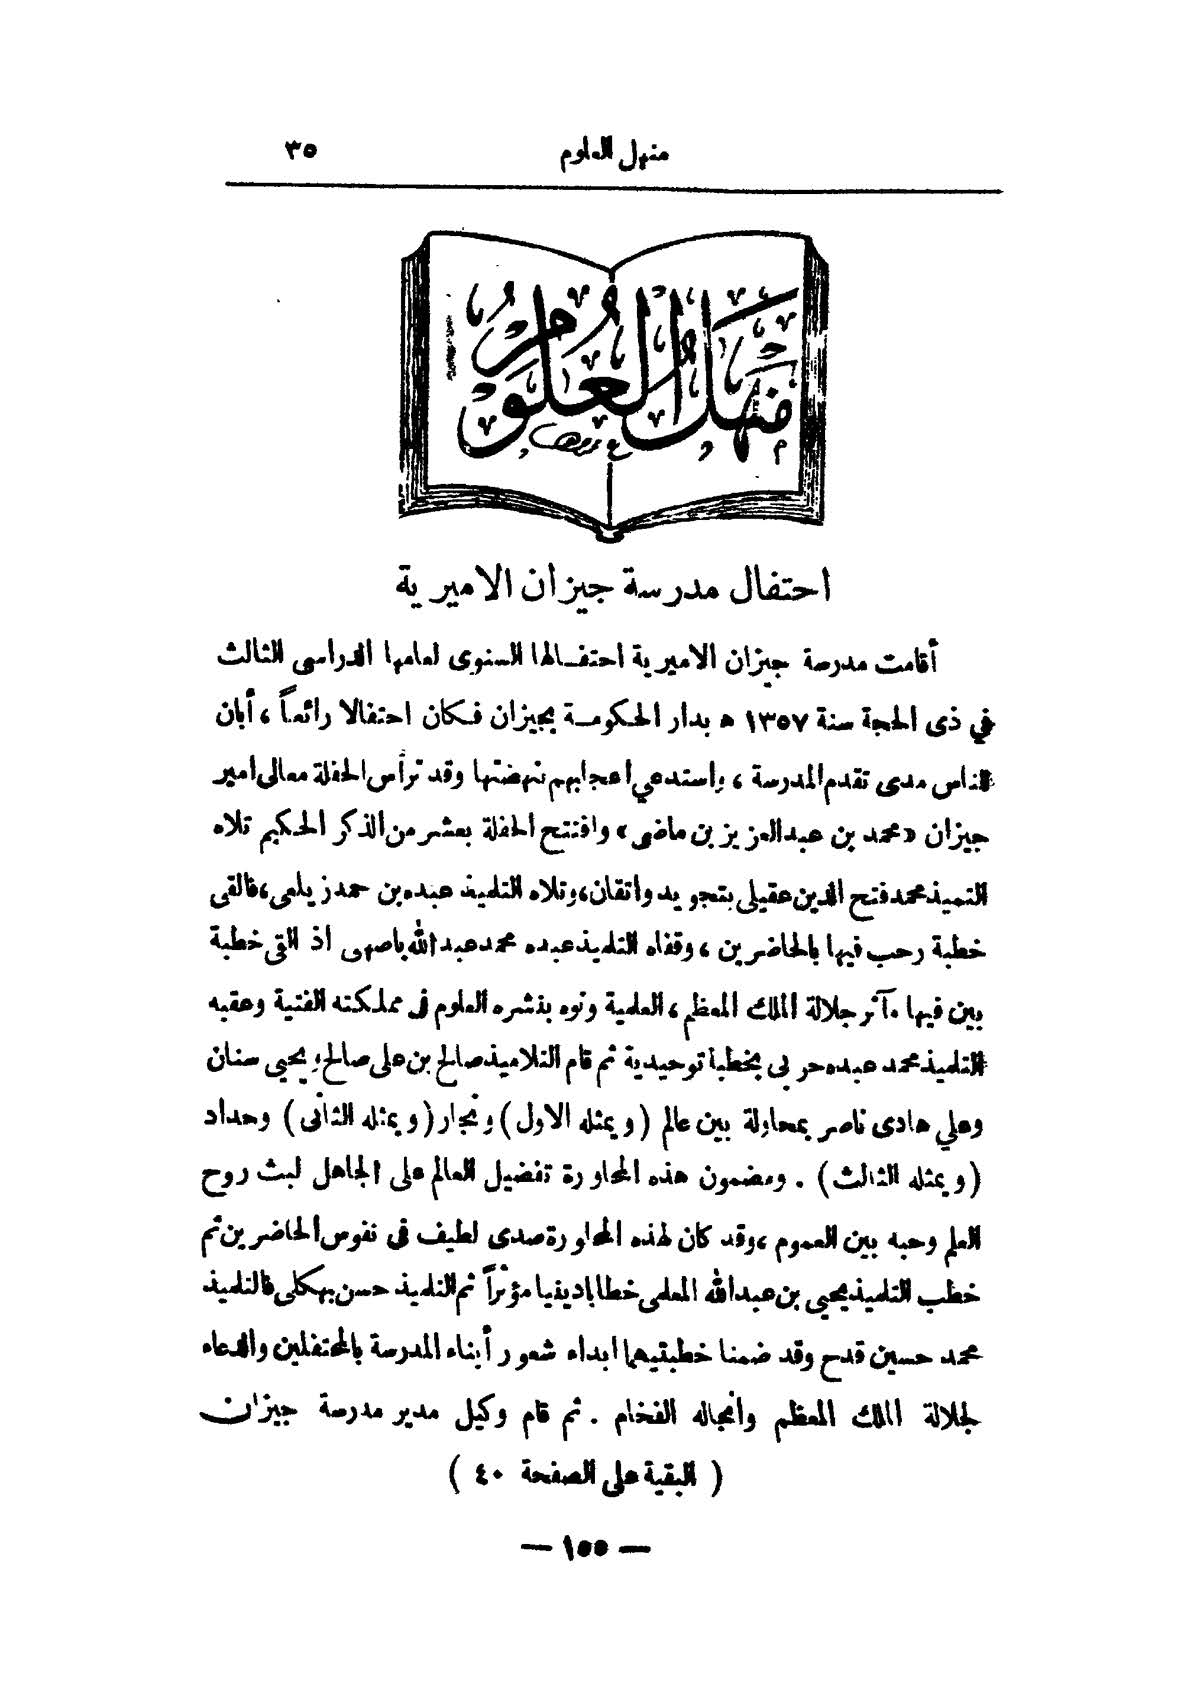 منهل العلوم ٣٥
منهل العلوم
احتفال مدرسة جيزان الاميرية
أقامت مدرسة جيزان الاميرية احتفالها السنوى لعامها الدراسى الثالث
في ذى الحجة سنة ١٣٥٧ ه بدار الحكومة بجيزان فكان احتفالا رائعاً ، أبان
للناس مدى تقدم المدرسة ، واستدعي اعجابهم بنهضتها وقد ترأس الحفلة معالى امير
جيزان «محمد بن عبد العزيز بن ماضى» وافتتح الحفلة بعشر من الذكر الحكيم تلاه
التميذ محمد فتح الدين عقيلى بتجويد واتقان، وتلاه التلميذ عبده بن حمد زيلعى، فالقى
خطبة رحب فيها بالحاضرين ، وقفاه التلميذ عبده محمد عبد الله باصهى اذ القى خطبة
بين فيها مآثر جلالة الملك المعظم ، العلمية ونوه بنشره العلوم فى مملكته الفتية وعقبه
التلميذ محمد عبده حربى بخطبة توحيدية ثم قام التلاميذ صالح بن على صالح، يحيى سنان
وعلي هادى ناصر بمحاولة بين عالم ( ويمثله الاول ) ونجار ( ويمثله الثانى ) وحداد
( ويمثله الثالث ) . ومضمون هذه المحاورة تفضيل العالم على الجاهل لبث روح
العلم وحبه بين العموم ، وقد كان لهذه المحاورة صدى لطيف فى نفوس الحاضرين ثم
خطب التلميذ يحيى بن عبد الله المعلمى خطابا دينيا مؤثراً ثم التلميذ حسن بهكلى فالتلميذ
محمد حسين قدح وقد ضمنا خطبتيهما ابداء شعور أبناء المدرسة بالمحتفلين والدعاء
لجلالة الملك المعظم وانجاله الفخام . ثم قام وكيل مدير مدرسة جيزان
( البقية على الصفحة ٤٠ )
— ١٥٥ —